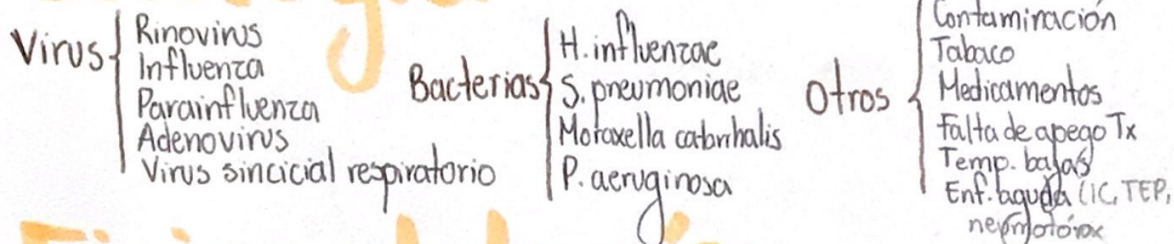 Virus
Rinovirus
Influenza
Parainfluenza
Adenovirus
Virus sincicial respiratorio
Bacterias
H. influenzae
S. pneumoniae
Moraxella catarrhalis
P. aeruginosa
Otros
Contaminación
Tabaco
Medicamentos
Falta de apego Tx
Temp. bajas
Enf. aguda (IC, TEP,
neumotórax